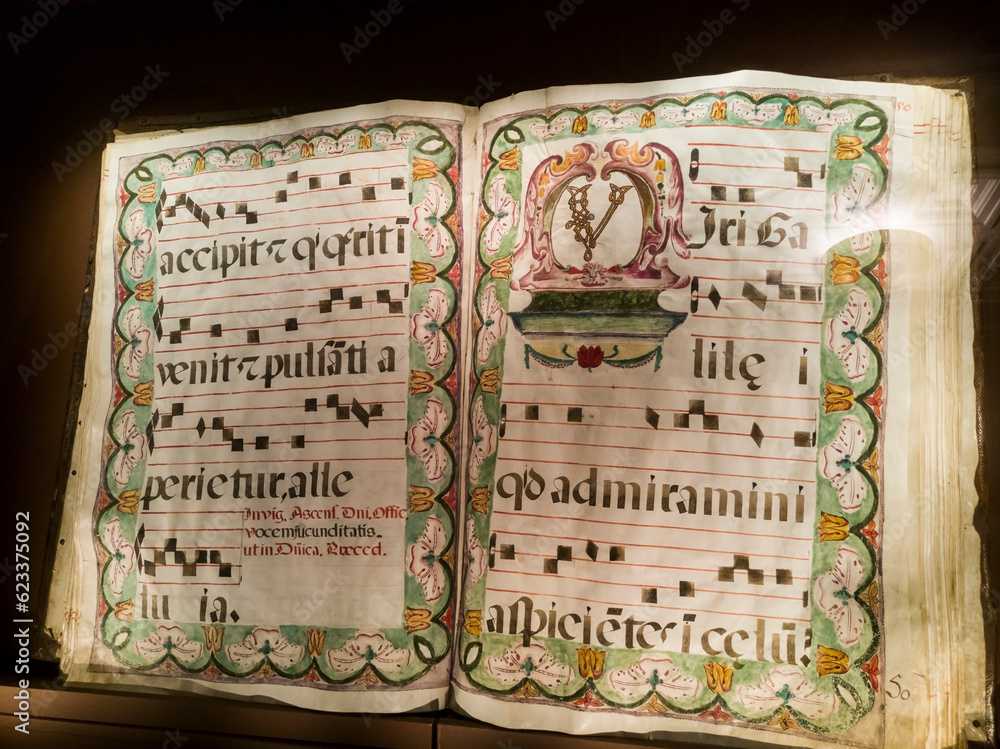 accipit⁊ q̇ q̇rit ī
venit⁊ pulsāti a
perietur, alle
In vig, Ascens. Dni. Offic
vocem jucunditatis.
ut in Dñica, Præced.
lu ia.
V
50
Iri Ga
lilę i
qd admiramini
aspiciētes ī celū?
50
Adobe Stock | 623375092